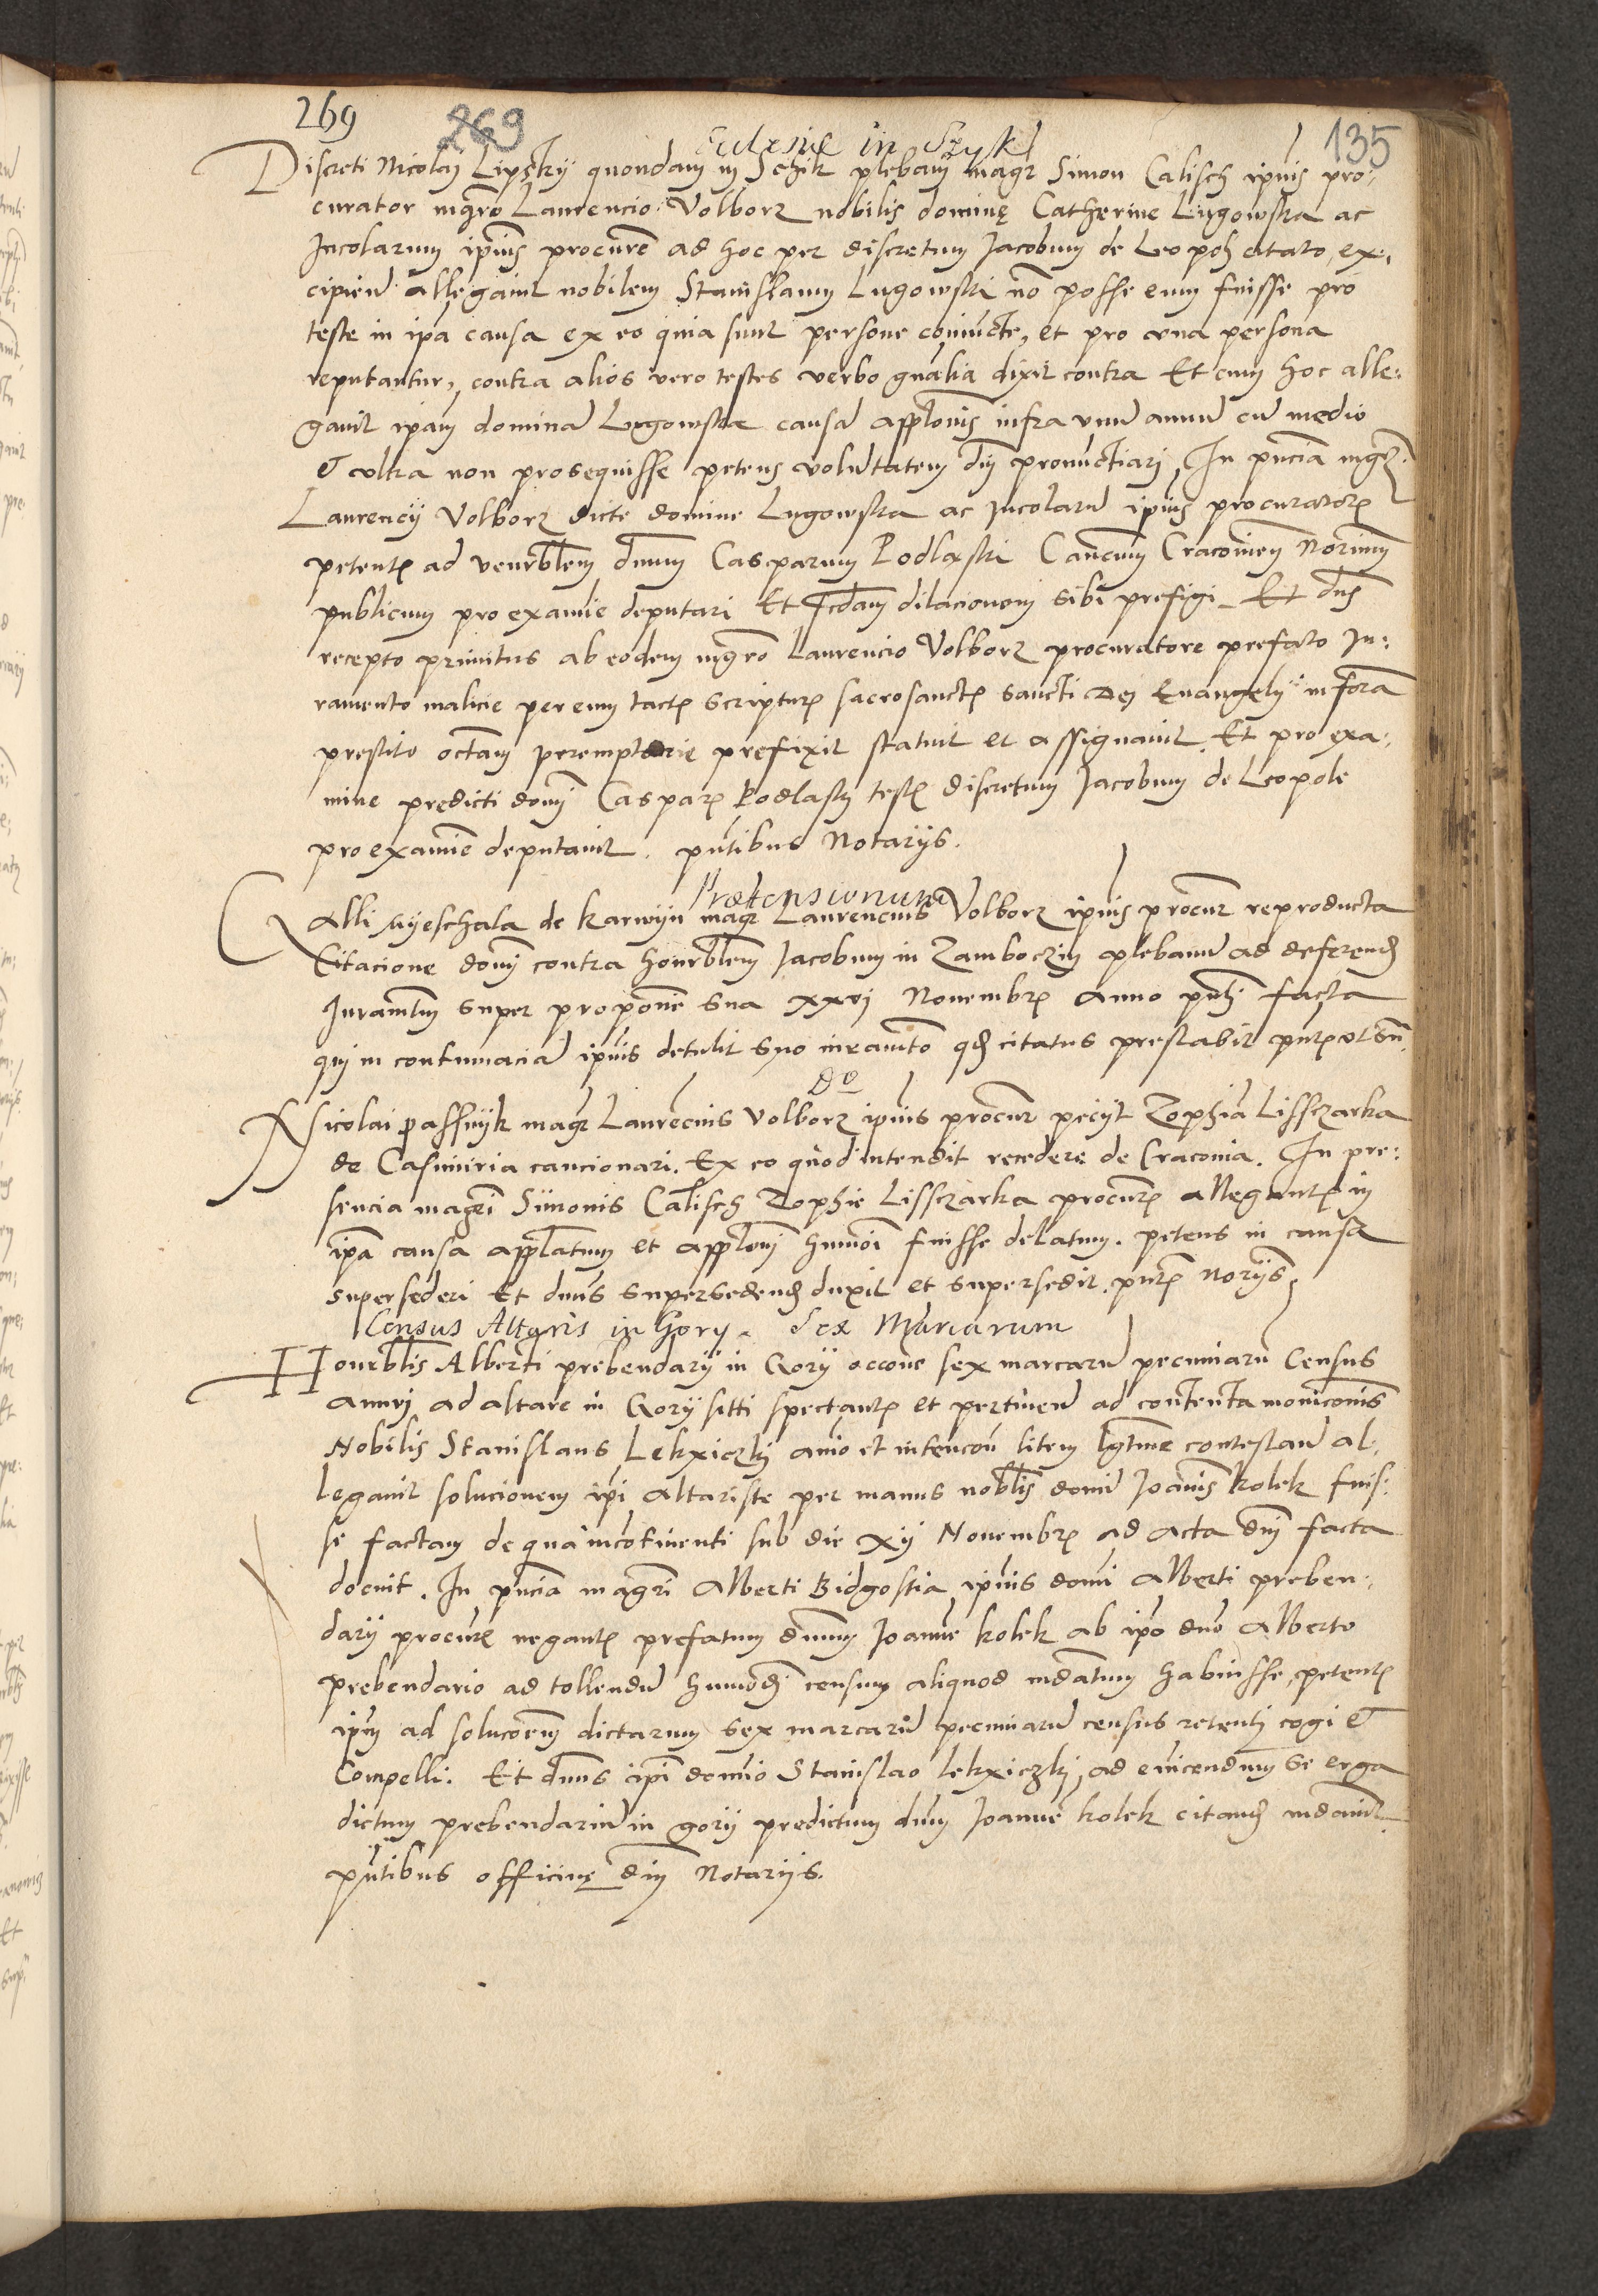 269 269 135
Ecclesiae in Szyk
Discreti Nicolai Lipsky quondam in Schik plebani magr Simon Calisch ipius pro
curator mgro Laurencio Volborz nobilis dominę Catherine Lugowska ac
Incolarum ipius procure ad hoc per discretum Jacobum de Leopoli citato, ex
cipien allegavit nobilem Stanislaum Lugowski no posse eum fuisse pro
teste in ipa causa ex eo quia sunt persone coniuncte, et pro una persona
reputantur, contra alios vero testes verbo gnalia dixit contra Et cum hoc alle
gavit ipam dominã Lugowska causã applonis infra unũ annũ cũ medio
& ultra non prosequisse petens voluntatem dni pronunctiari In pncia mgri
Laurencij Volborz dicte domine Lugowska ac Incolarũ ipius procuratoris
petentis ad venrblem dnum Casparum Podlaski Cancum Cracovien Norium
publicum pro examie deputari Et dilacionom sibi prefigi Et dns
recepto primitus ab eodem mgro Laurencio Volborz procuratore prefato Ju
ramento malicie per eum tactis scripturis sacrosanctis sancti Dei Evangelij in forã
prestito octam peremptorie prefixit statuit et assignavit. Et pro exa
mine predicti domi Casparis Podlasky testis discretum Jacobum de Leopole
pro examie deputavit. pntibus Notarijs.
Praetensionum
Galli Wyeschala de Karwyn magr Laurencius Volborz ipius procur reproducta
Citacione domi contra honrblem Jacobum in Zamboczin plebanũ ad deferend
Juramtum super propone sua xxvj Novembris anno pnti facta
qui in contumaciã ipius detulit suo iuramto qd citatus prestabit pntis ut sũ.
Do
Nicolai Passnyk magr Laurencius Volborz ipius procur pecijt Zophiã Lissczarka
de Casimiria caucionari. Ex eo quod intendit recedere de Cracovia. In pre
sencia magri Simonis Calisch Zophie Lissczarka procuris allegantis in
ipa causa applatum et applomj humoi fuisse delatum. petens in causa
supersederi Et dnus supersedend duxit et supersedit. pntis Norijs
Census Altaris in Gory. Sex Marcarum
Honrblis Alberti prebendarij in Gory occone sex marcarũ pecuniarũ Census
annui ad altare in Gory sitti spectantis et pertinen ad contenta monicionis
Nobilis Stanislaus Lekxiczki anio et intencon litem lgtime contestan al
legavit solucionem ipi altariste per manus noblis domi Joanis Kolek fuis
se factam de qua incotinenti sub die xij Novembris ad acta dni facta
docuit. In pncia magri Alberti Bidgostia ipius domi Alberti preben
darij procuris negantis prefatum dnum Joannem Kolek ab ipo dno Alberto
prebendario ad tollendũ humodi censum aliquod mdatum habuisse, petentis
ipm ad solucoem dictarum sex marcarũ pecuniarũ census retenti cogi &
Compelli. Et dnus ipi domio Stanislao Lekxiczki, ad evincendum se erga
dictum prebendariũ in gorij predictum dnm Joanne Kolek citand mdavit
pntibus officinę dni Notarijs.